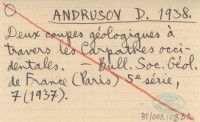 ANDRUSOV D. 1938.
Deux coupes géologiques à
travers les Carpathes occi-
dentales. – Bull. Soc. Géol.
de France (Paris) 5e série,
7 (1937).